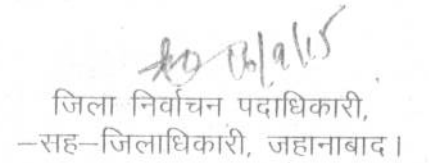 जिला निर्वाचन पदाधिकारी,
–सह–जिलाधिकारी, जहानाबाद।